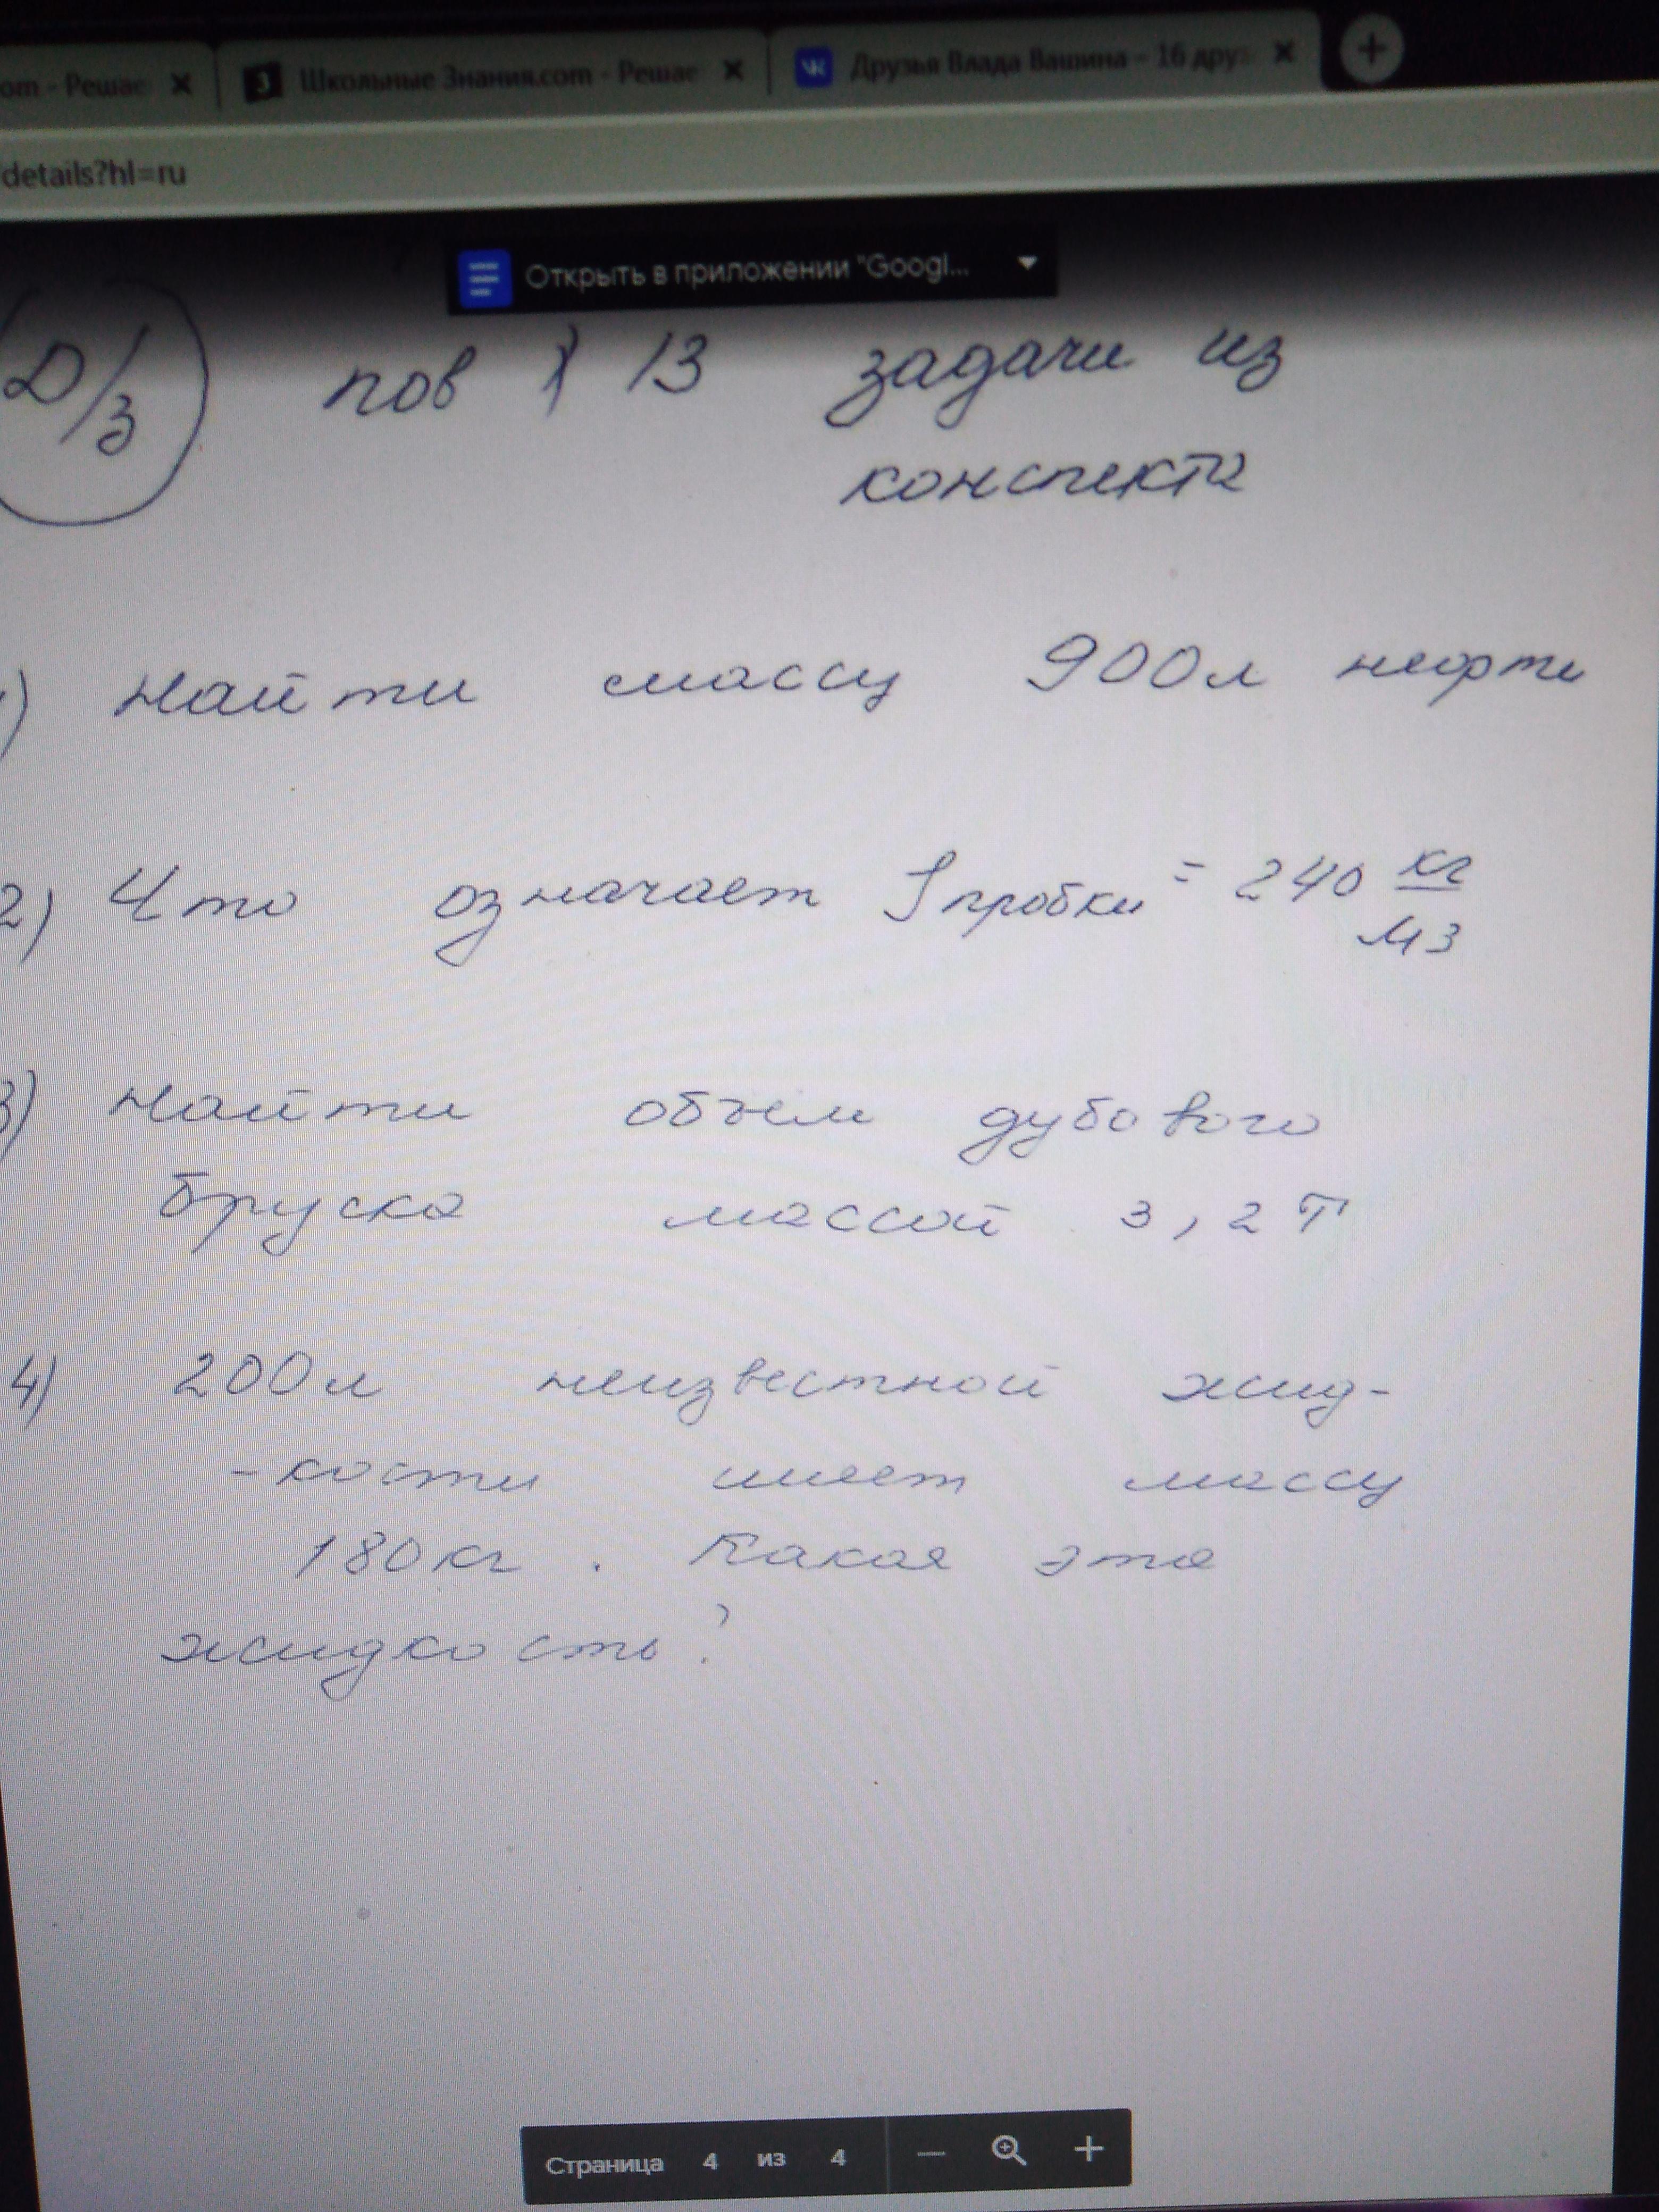 om - Решае
Школьные Знания.com - Решае
Друзья Влада Вашина – 16 друз
details?hl=ru
Открыть в приложении "Googl...
Д/з пов § 13 задачи из
конспекта
1) Найти массу 900л нефти
2) Что означает ρ пробки = 240 кг/м3
3) Найти объем дубового
бруска массой 3,2 т
4) 200л неизвестной жид-
-кости имеет массу
180кг. Какая это
жидкость?
Страница 4 из 4